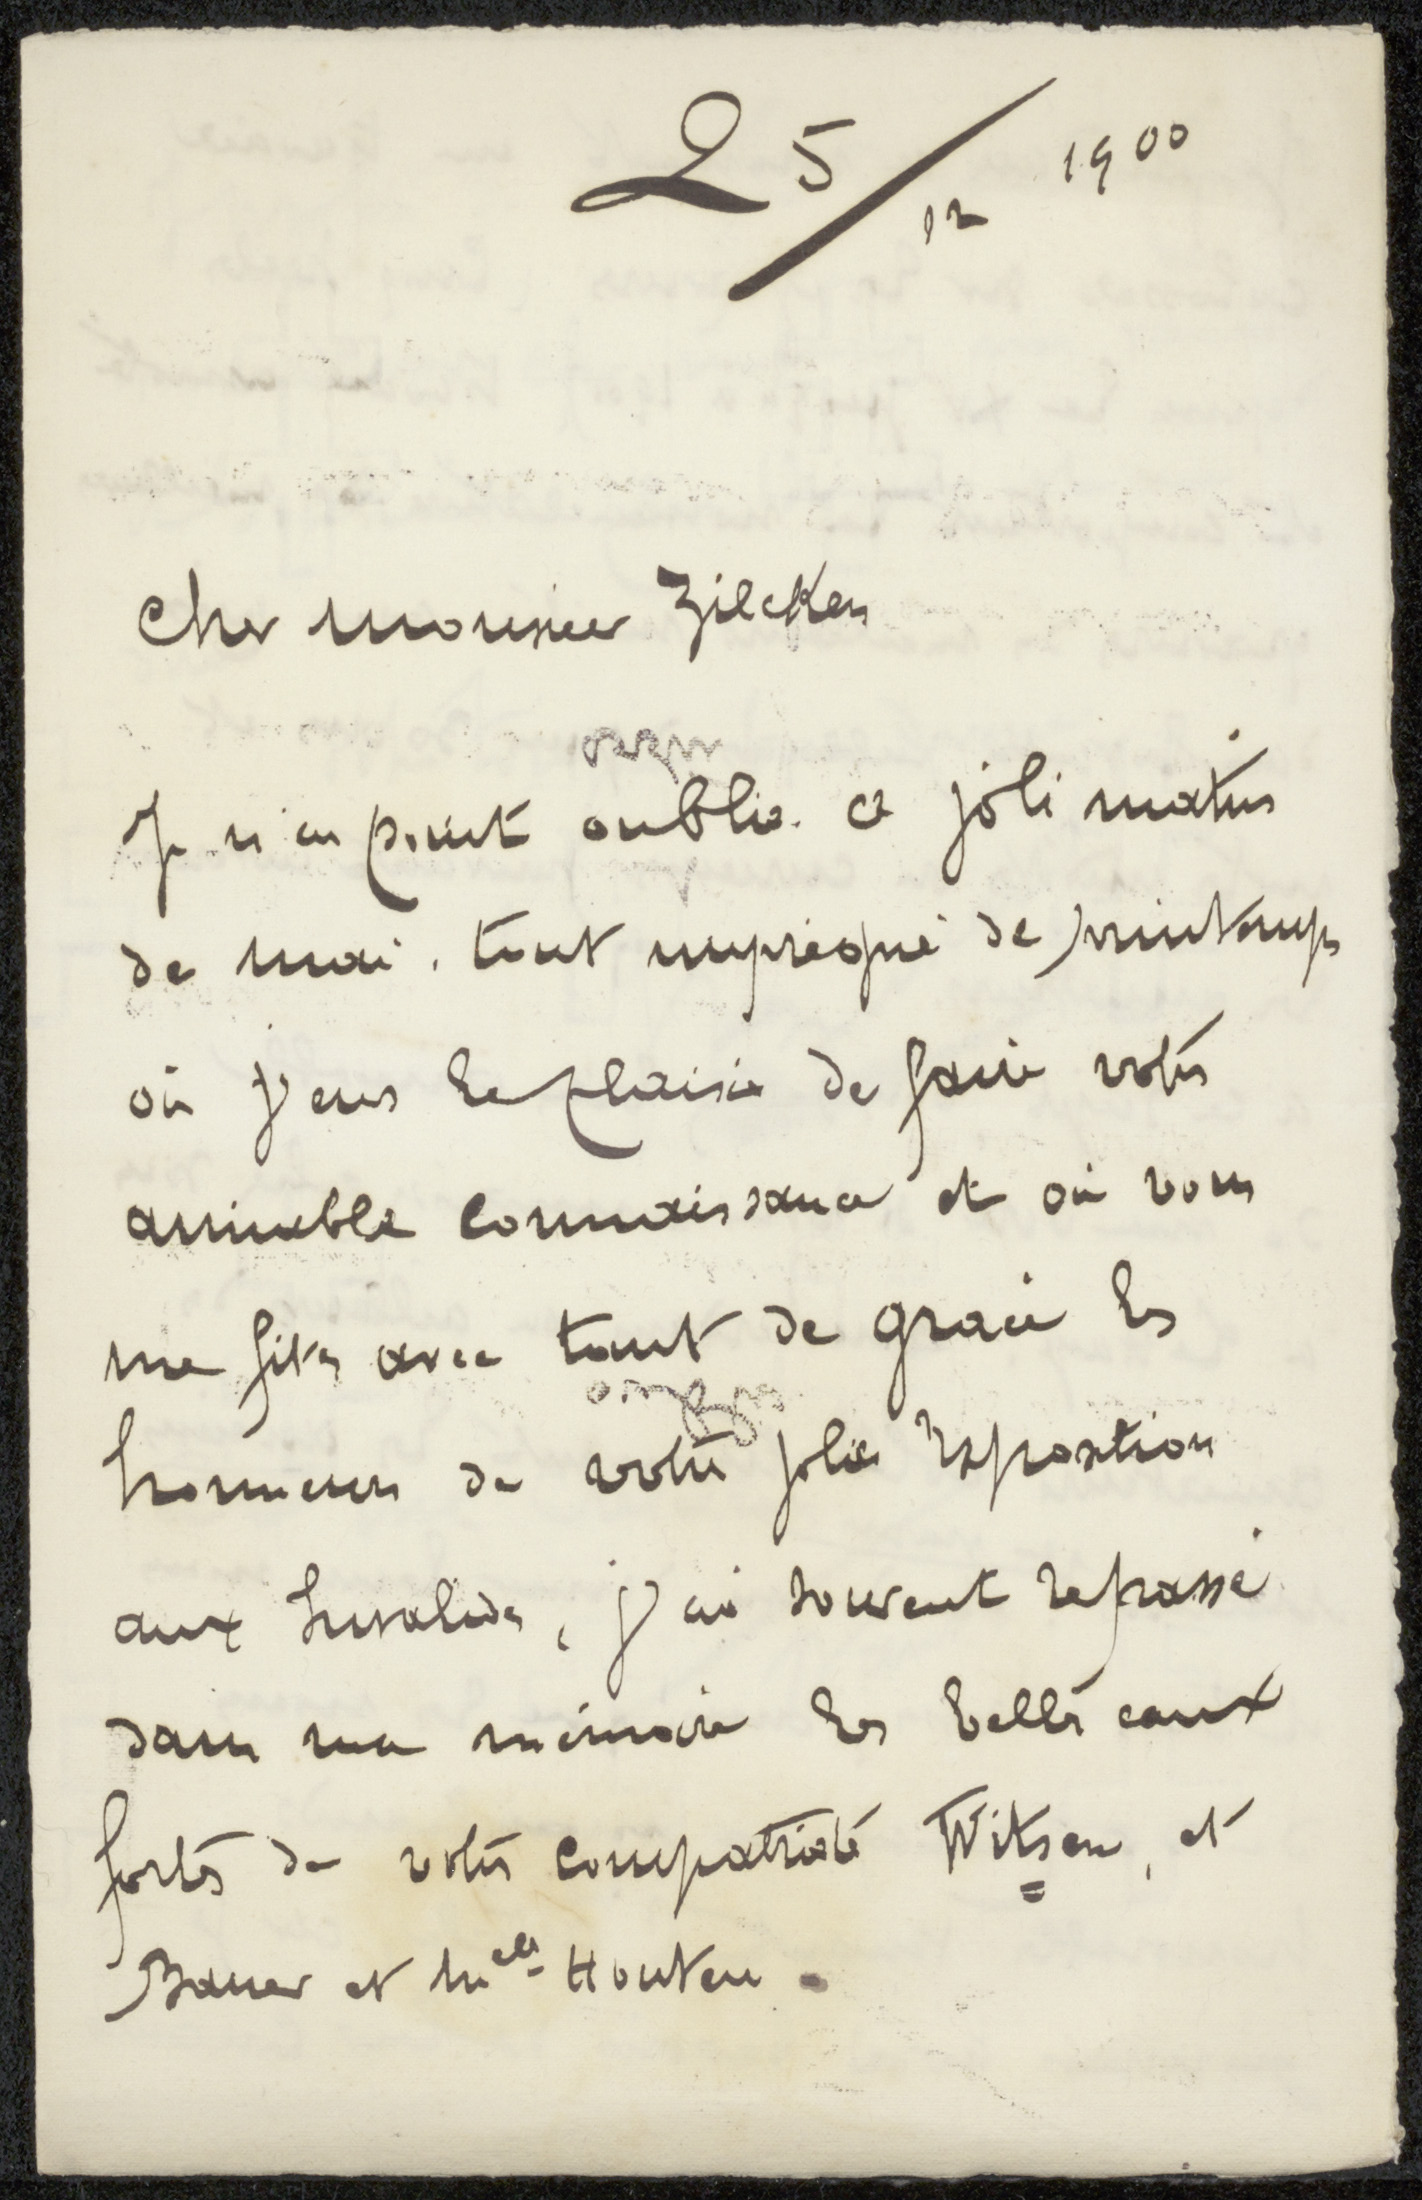 25/12 1900
Cher monsieur Zilcken
Je n'ai point oublié ce joli matin
de mai, tout imprégné de printemps
où j'eus le plaisir de faire votre
aimable connaissance et où vous
me fites avec tant de grace les
honneurs de votre jolie Exposition
aux Invalides, j'ai souvent repassé
dans ma mémoire les belles eaux
fortes de votre compatriote Witsen, et
Bauer et Melle Houten.